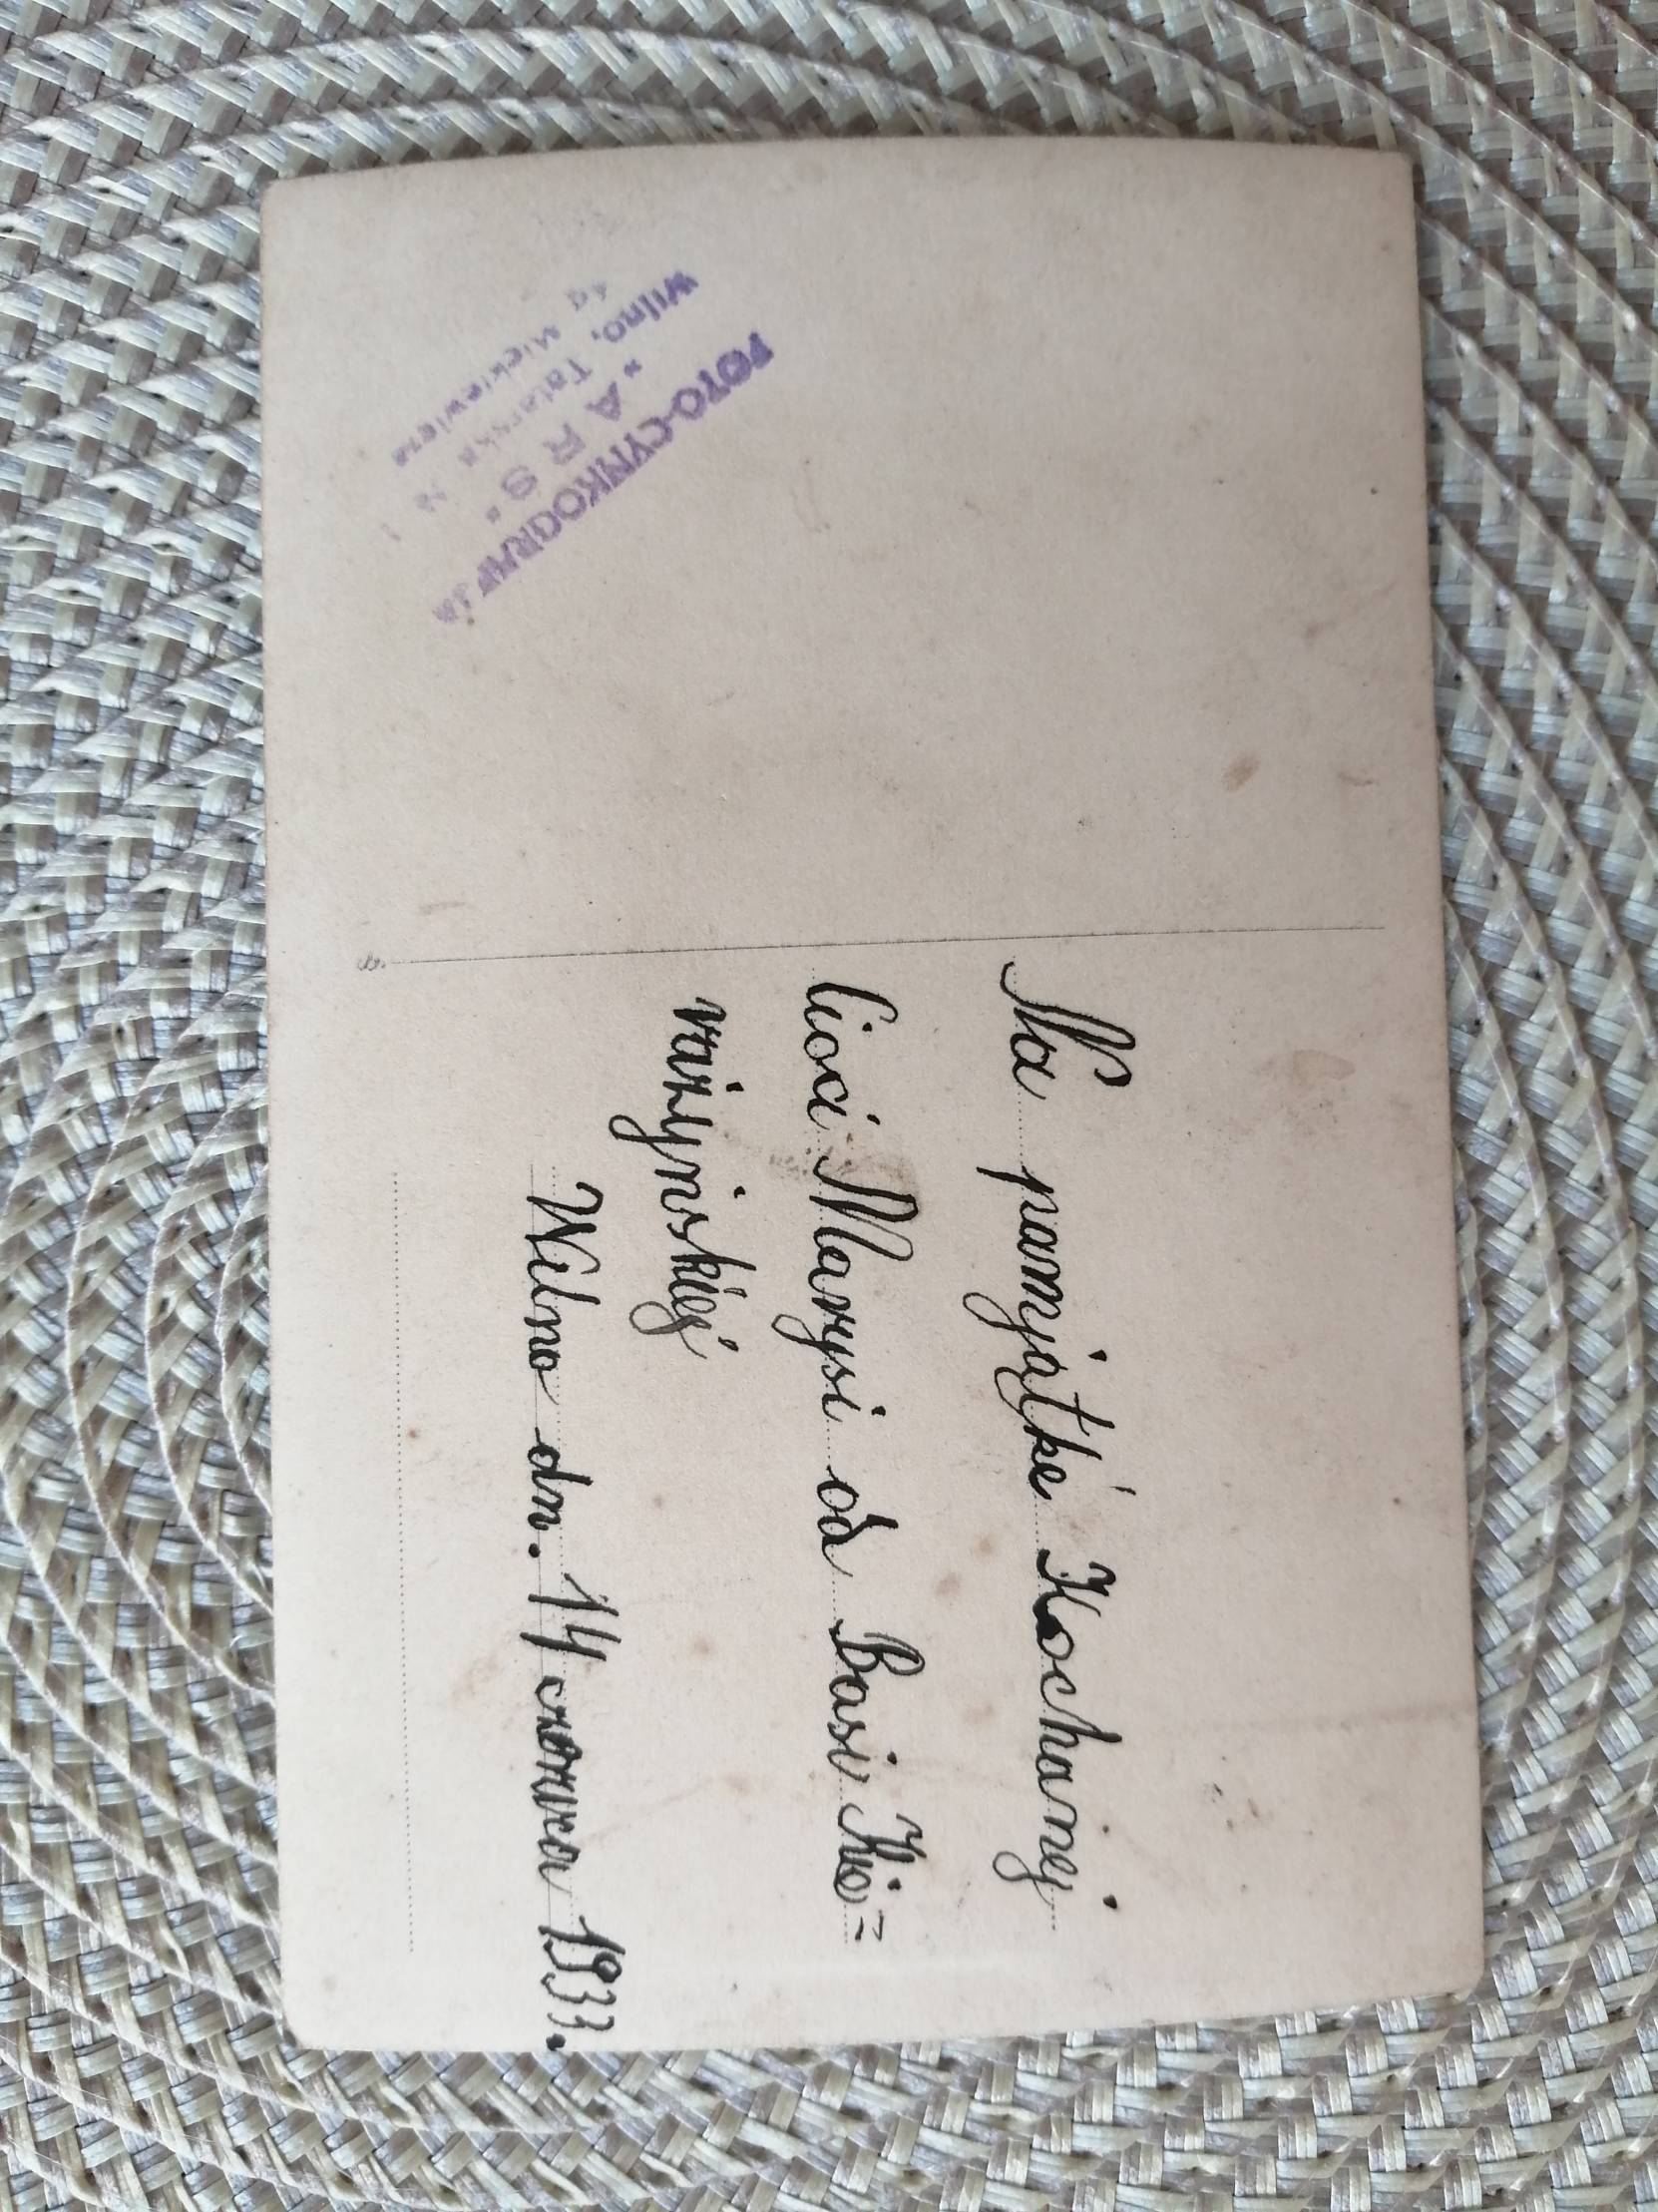 FOTO-CYNKOGRAFJA
"ARS"
Wilno, Tatarska № 1
Mickiewicza
Na pamiątkę Kochanej
Cioci Marysi od Basi Kie=
rażyńskiej
Wilno dn. 14 czerwca 1933.